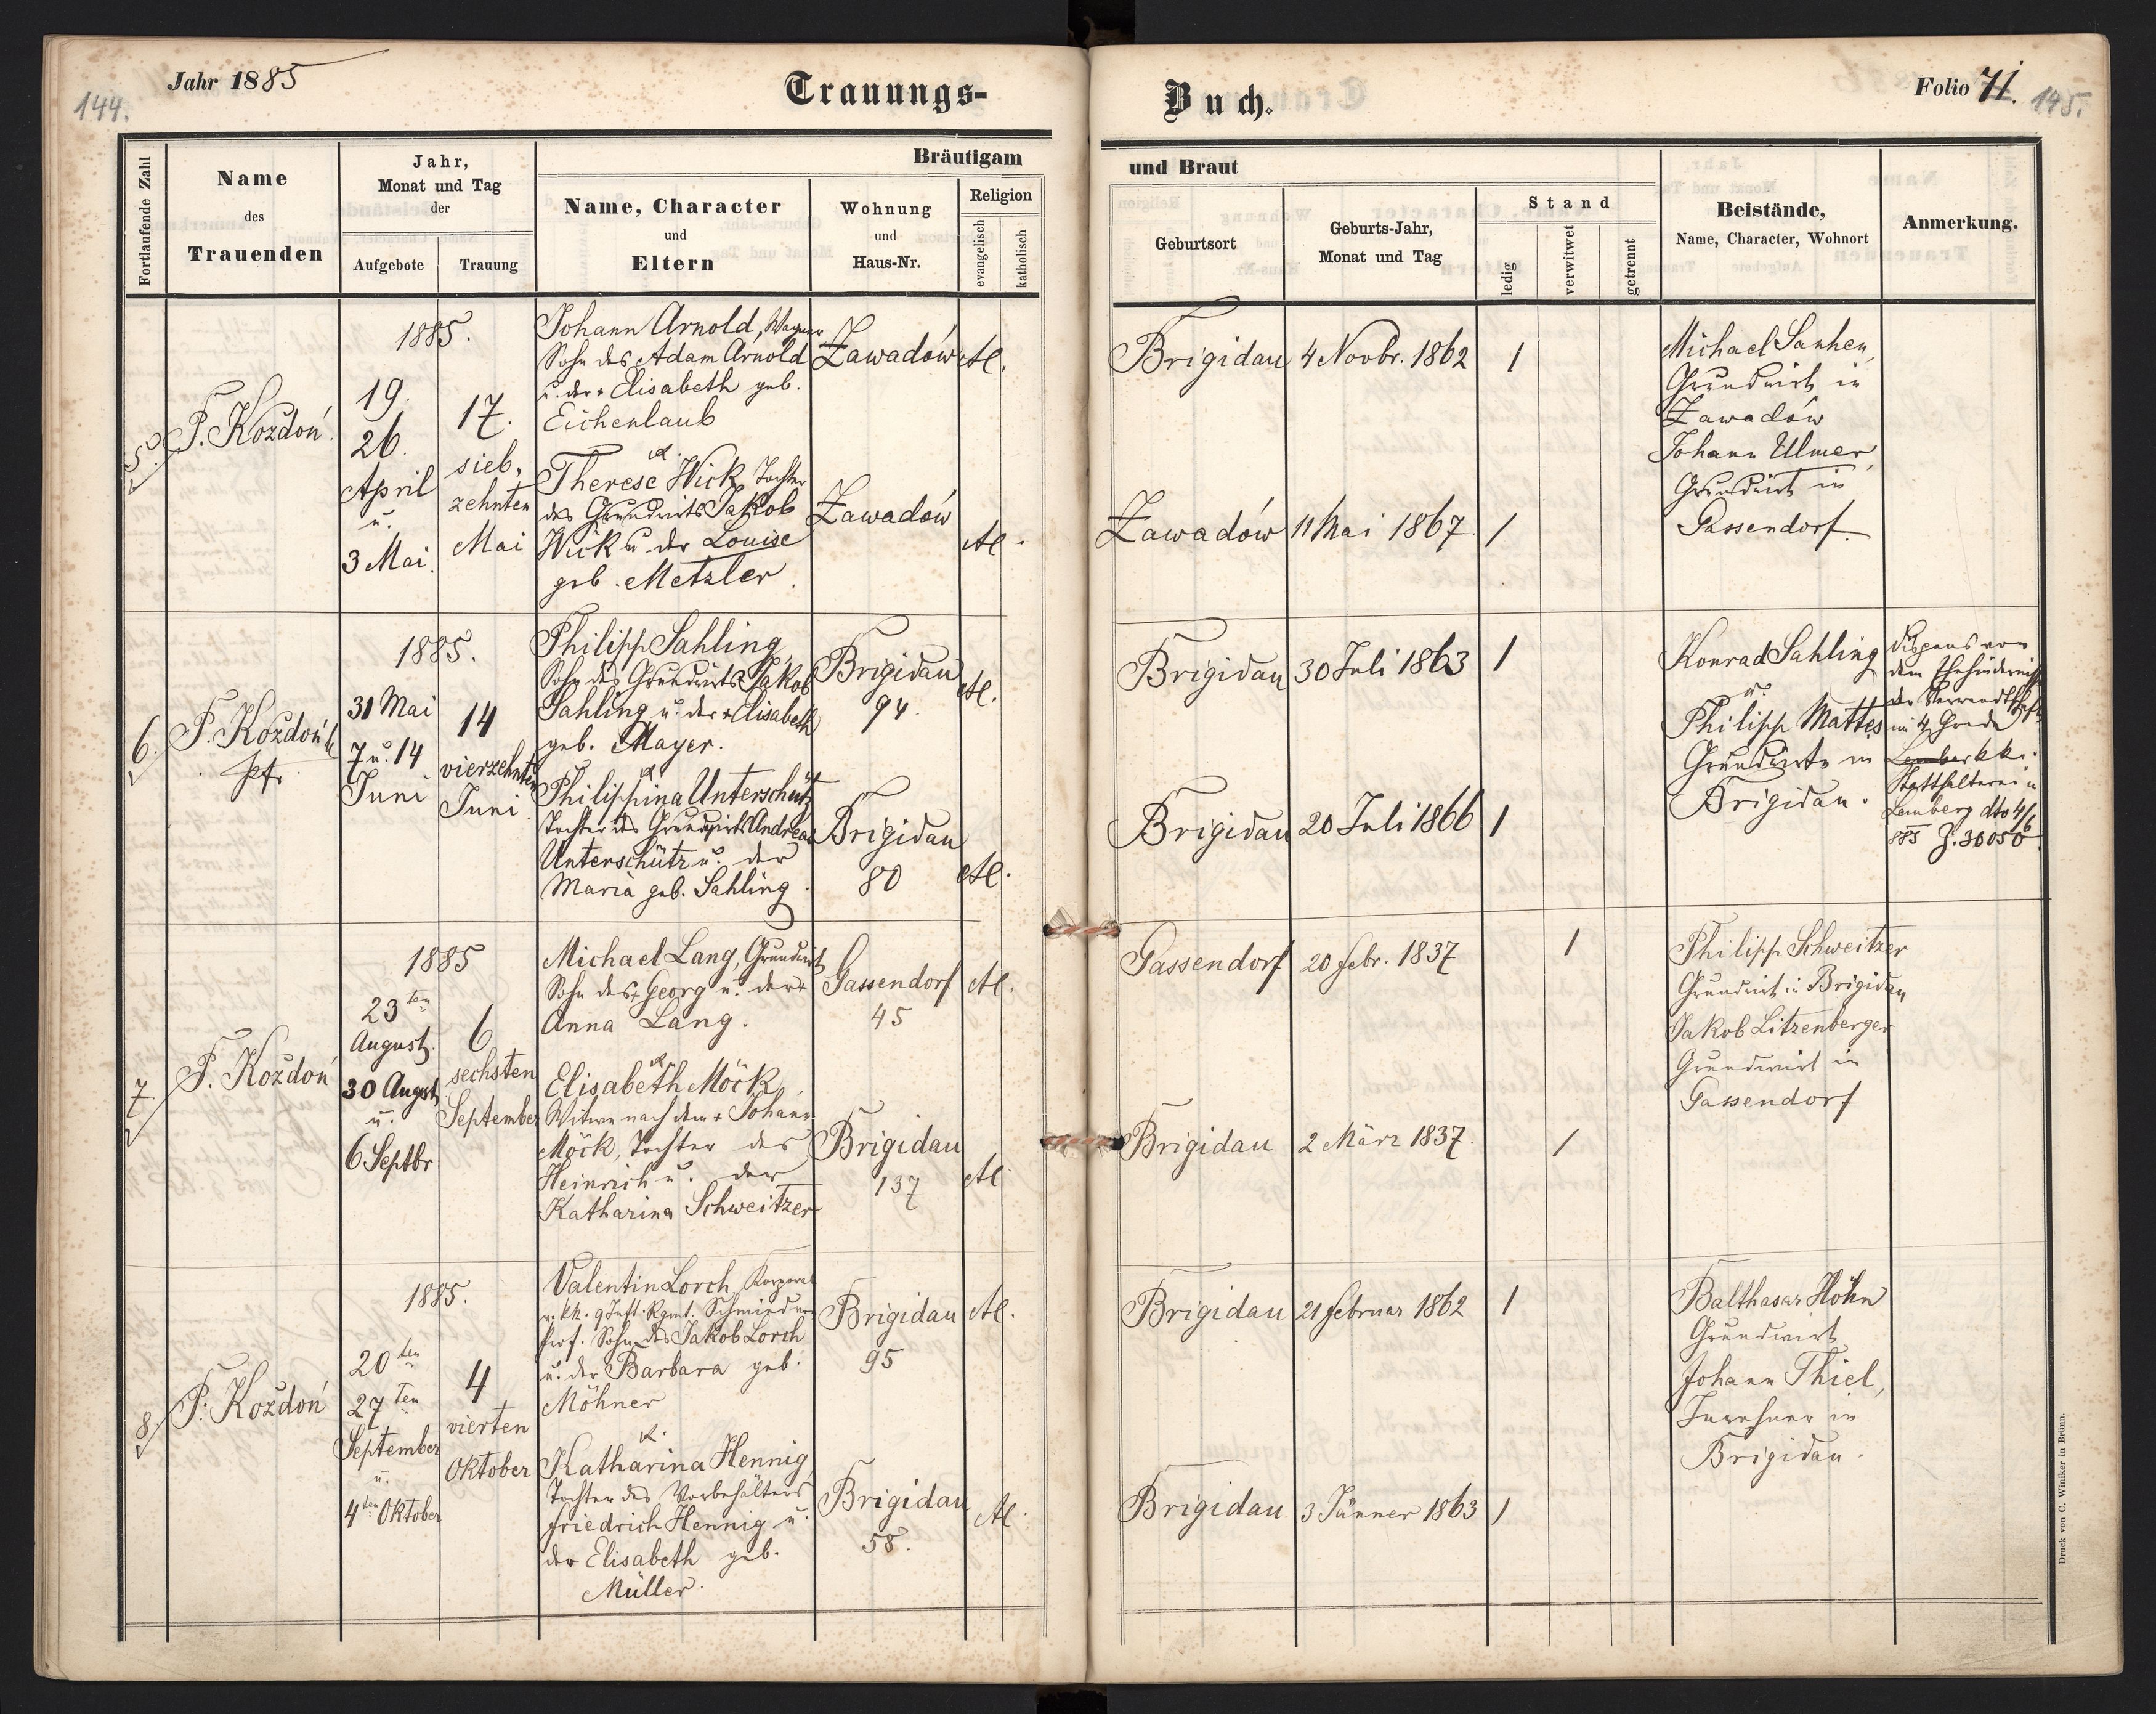 144.
Jahr 1885
Trauungs-
Buch.
Folio 71.
145.
Fortlaufende Zahl
Name
des
Trauenden
Jahr,
Monat und Tag
der
Aufgebote
Trauung
Bräutigam
Name, Character
und
Eltern
Wohnung
und
Haus-Nr.
Religion
evangelisch
katholisch
und Braut
Geburtsort
Geburts-Jahr,
Monat und Tag
Stand
ledig
verwitwet
getrennt
Beistände,
Name, Character, Wohnort
Anmerkung.
5.
F. Koždoń
1885.
19.
26.
April
u.
3 Mai.
17.
sieb-
zehnten
Mai
Johann Arnold, Wagner
Sohn des Adam Arnold
u. der + Elisabeth geb.
Eichenlaub
u.
Therese Wick, Tochter
des Grundwirts Jakob
Wick u. der Louise
geb. Metzler.
Zawadów
Zawadów
Al.
Al.
Brigidau
4 Novbr. 1862
1
Zawadów
11 Mai 1867
1
Michael
Grundwirt in
Zawadów
Johann Ulmer,
Grundwirt in
Gassendorf.
6.
F. Koždoń
Pfr.
1885.
31 Mai
7 u. 14
Juni
14
vierzehnten
Juni.
Philipp Sahling,
Sohn des Grundwirts Jakob
Sahling u. der + Elisabeth
geb. Mayer.
u.
Philippina Unterschütz
Tochter des Grundwirts Andreas
Unterschütz u. der
Maria geb. Sahling.
Brigidau
94.
Brigidau
80
Al.
Al.
Brigidau
30 Juli 1863
1
Brigidau
20 Juli 1866
1
Konrad Sahling
u.
Philipp Mattes
Grundwirte in
Brigidau.
Dispens von
dem Ehehindernisse
der Verwandtschaft
im 4 Grade
k.k.
Statthalterei in
Lemberg dto 4/6
885 Z. 36050
7
F. Koždoń
1885
23ten
August.
30 Augst
u.
6 Septbr
6
sechsten
September
Michael Lang, Grundwirt
Sohn des + Georg u. der +
Anna Lang.
u.
Elisabeth Möck,
Witwe nach dem + Johann
Möck, Tochter des
Heinrich u. der
Katharina Schweitzer
Gassendorf
45
Brigidau
137
Al.
Al
Gassendorf
20 Febr. 1837
1
Brigidau
2 März 1837.
1
Philipp Schweitzer
Grundwirt in Brigidau
Jakob Litzenberger
Grundwirt in
Gassendorf
8.
F. Koždoń
1885.
20ten
27ten
September
u.
4ten Oktober
4
vierten
Oktober
Valentin Lorch, Korporal
9 Inft. Rgmt. Schmied von
Prof. Sohn des Jakob Lorch
u. der Barbara geb.
Möhner
u.
Katharina Hennig,
Tochter des Vorbehälters
Friedrich Hennig u.
der Elisabeth geb.
Müller.
Brigidau
95
Brigidau
58.
Al.
Al.
Brigidau
21 Februar 1862
1
Brigidau
3 Jänner 1863
1
Balthasar Höhn
Grundwirt
Johann Thiel,
Inwohner in
Brigidau.
Druck von C. Winiker in Brünn.